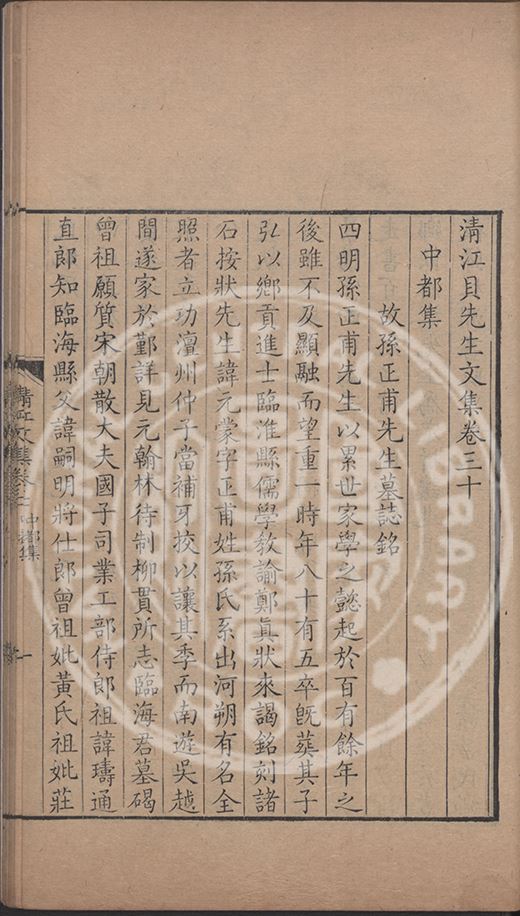 清江貝先生文集卷三十
中都集
故孫正甫先生墓誌銘
四明孫正甫先生以累世家學之懿起於百有餘年之
後雖不及顯融而望重一時年八十有五卒旣葬其子
弘以鄉貢進士臨淮縣儒學教諭鄭真狀來謁銘刻諸
石按狀先生諱元蒙字正甫姓孫氏系出河朔有名全
照者立功澶州仲子當補牙挍以讓其季而南遊吳越
間遂家於鄞詳見元翰林待制柳貫所志臨海君墓碣
曾祖願質宋朝散大夫國子司業工部侍郎祖諱璹通
直郎知臨海縣父諱嗣明將仕郎曾祖妣黃氏祖妣莊
清江文集卷三十
中都集
一